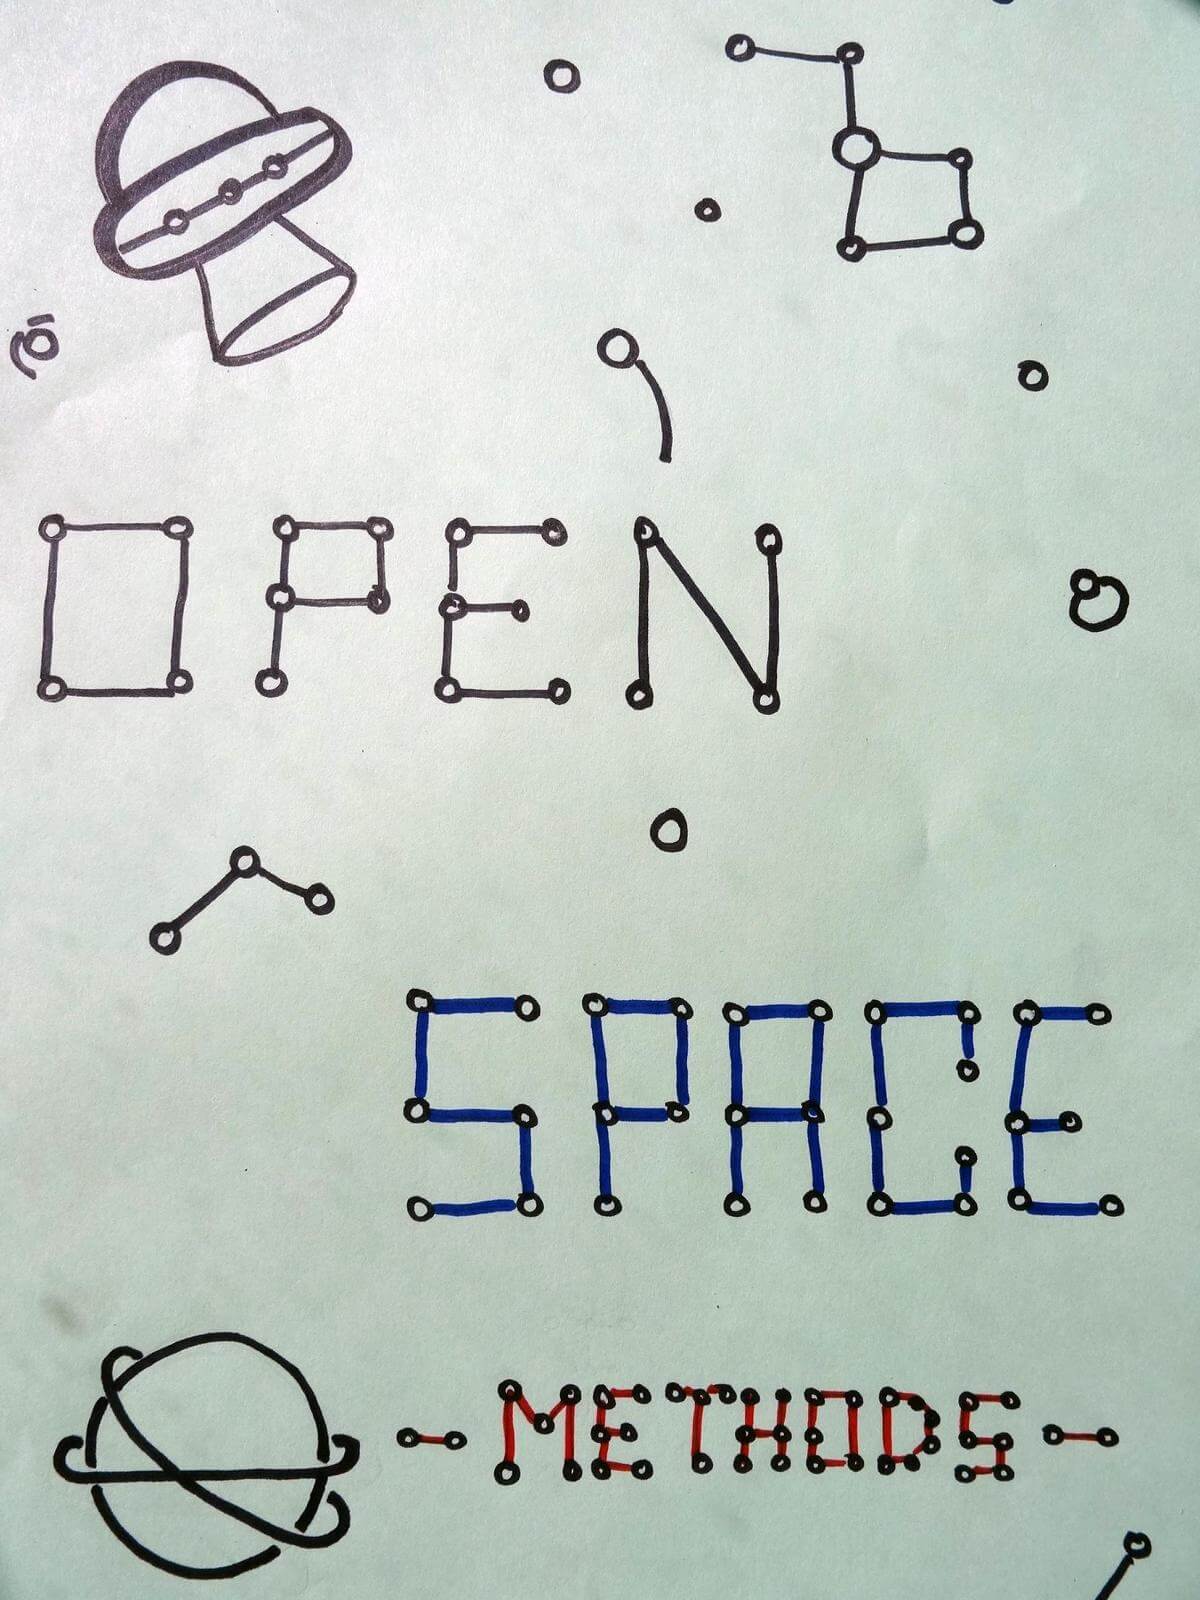 OPEN
SPACE
- METHODS -